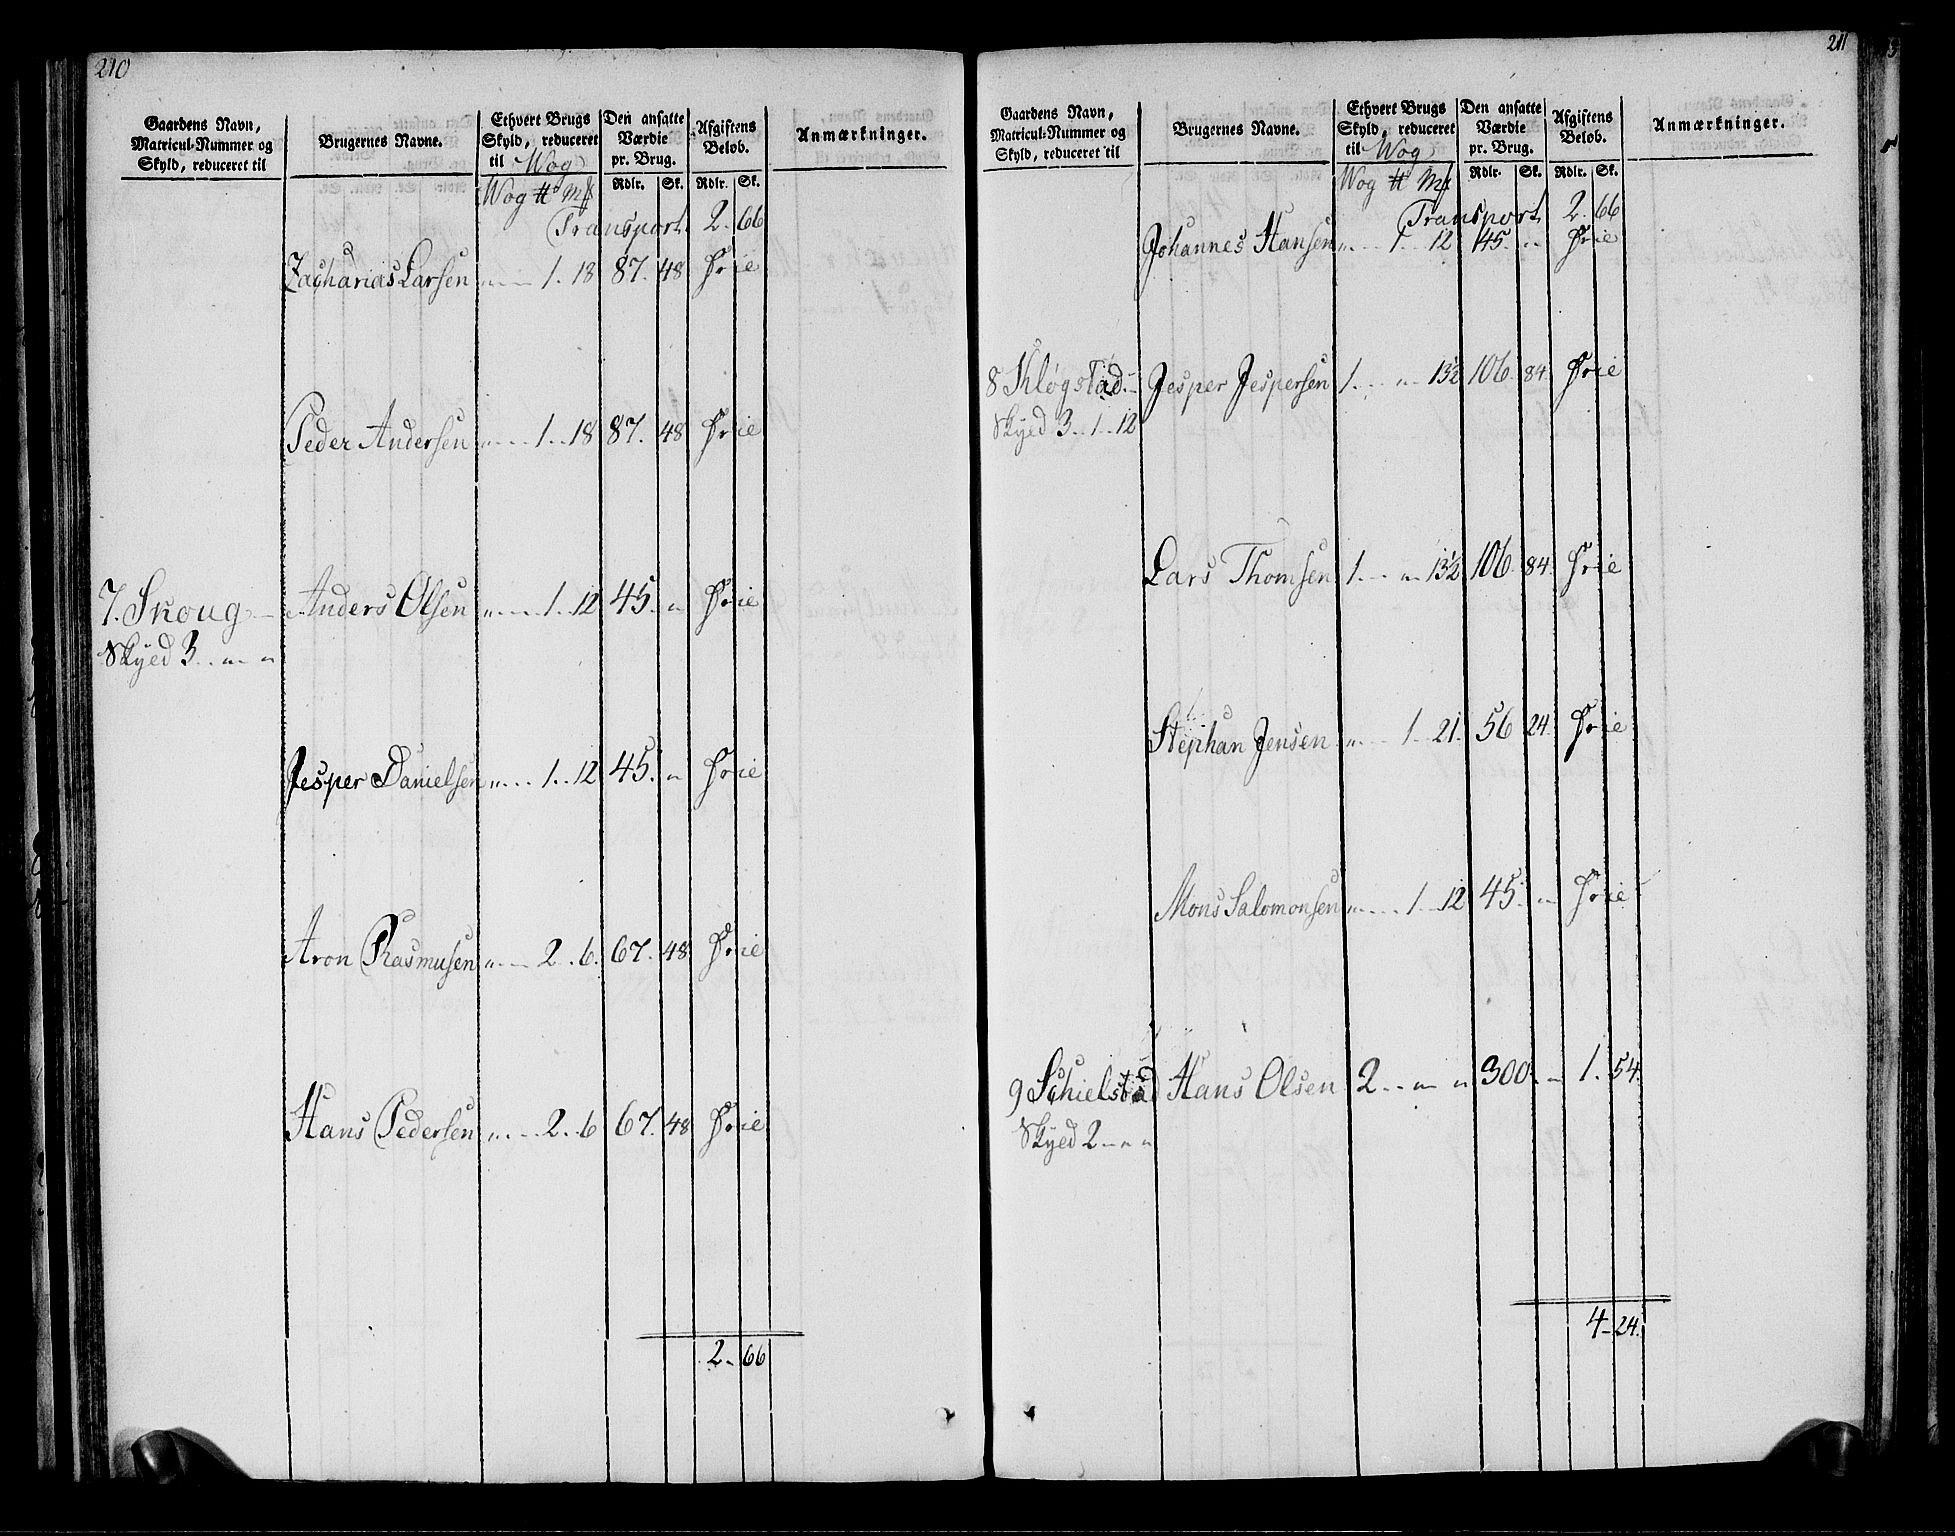 210
Gaardens Navn, Matricul-Nummer og Skyld, reduceret til
Brugernes Navne.
Ethvert Brugs Skyld, reduceret til Wog
Den ansatte Værdie pr. Brug.
Afgiftens Beløb.
Anmærkninger.
Wog ℔ Mk Rdlr. Sk. Rdlr. Sk.
Transport 2. 66
Zacharias Larsen „ 1. 18 87. 48 Frie
Peder Andersen „ 1. 18 87. 48 Frie
7. Skoug Anders Olsen „ 1. 12 45. „ Frie
Skyld 3 „ „
Jesper Danielsen „ 1. 12 45. „ Frie
Aron Rasmusen „ 2. 6. 67. 48 Frie
Hans Pedersen „ 2. 6 67. 48 Frie
2. 66
211
Gaardens Navn, Matricul-Nummer og Skyld, reduceret til
Brugernes Navne.
Ethvert Brugs Skyld, reduceret til Wog
Den ansatte Værdie pr. Brug.
Afgiftens Beløb.
Anmærkninger.
Wog ℔ Mk Rdlr. Sk. Rdlr. Sk.
Transport 2. 66
Johannes Hansen „ 1 12 45. „ Frie
8 Kløgstad Jesper Jespersen 1 „ 13½ 106. 84 Frie
Skyld 3 1 12
Lars Thomsen 1 „ 13½ 106. 84 Frie
Stephan Jensen „ 1 21. 56 24 Frie
Mons Salomonsen „ 1 12 45. „ Frie
9 Schielstad Hans Olsen 2 „ „ 300. „ 1. 54.
Skyld 2 „ „
4 24.